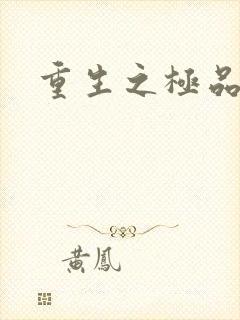 重生之極品
黃鳳